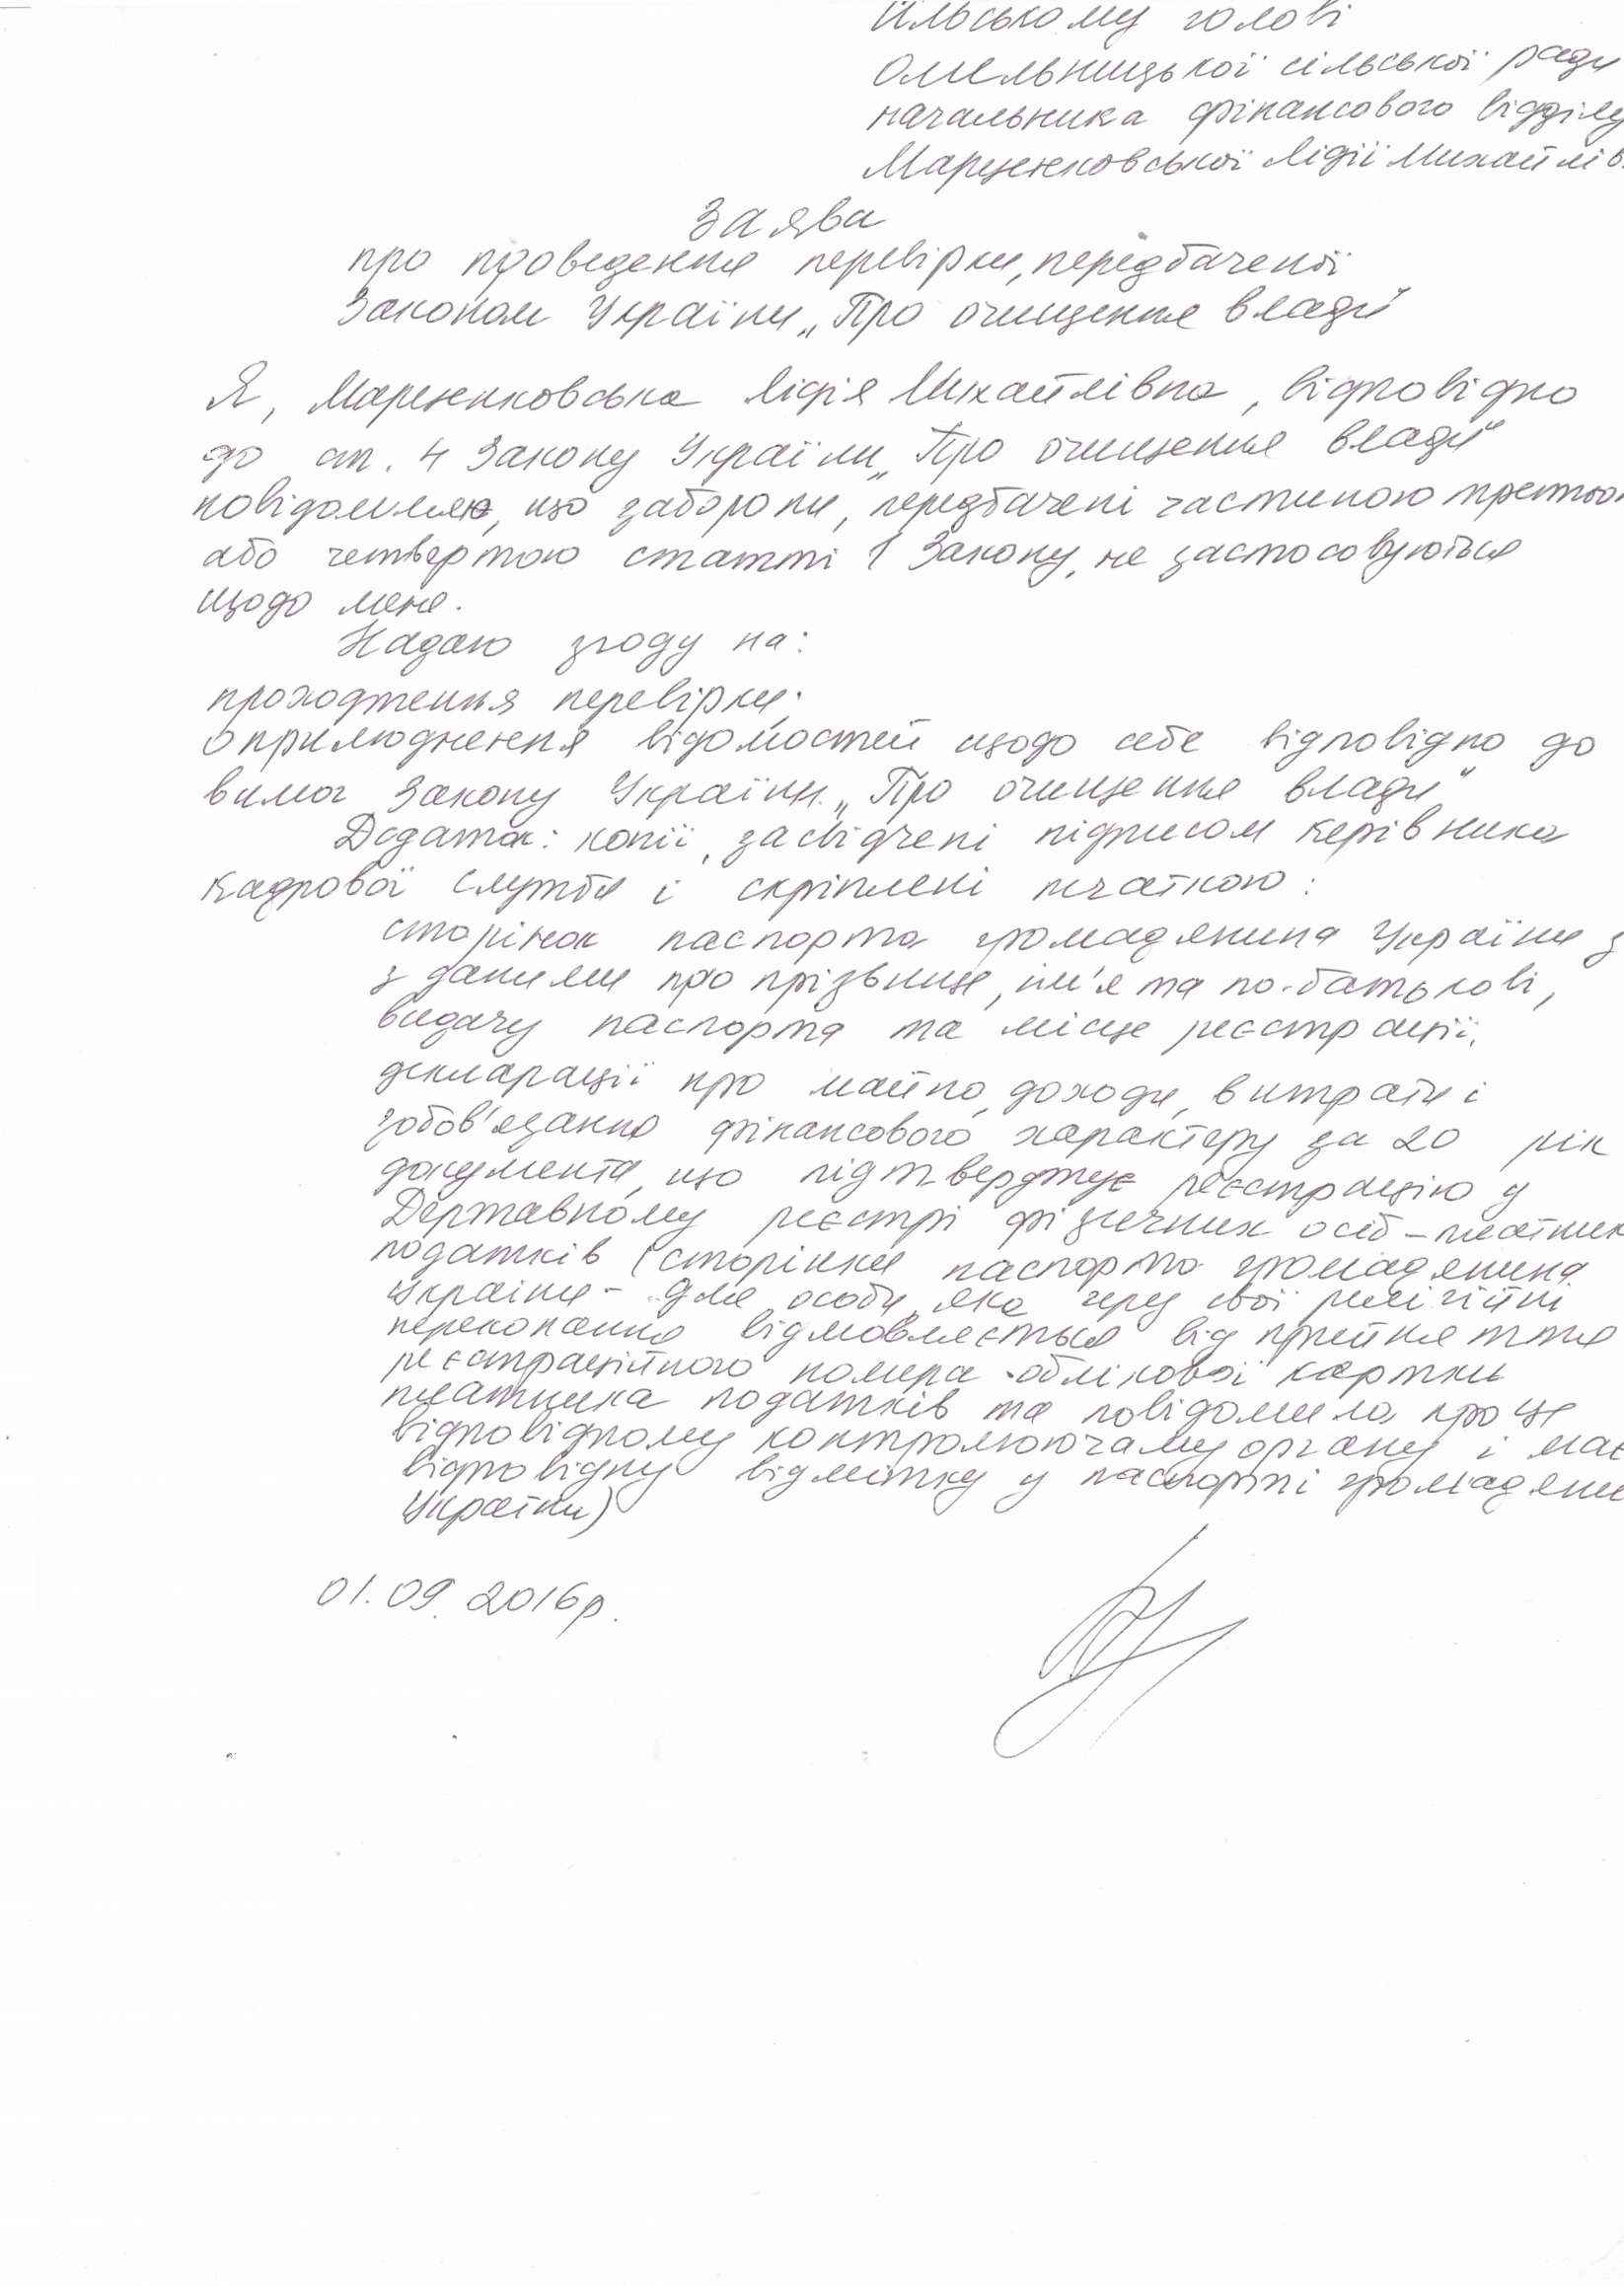 сільському голові
Омельницької сільської ради
начальника фінансового відділу
Марценковської Лідії Михайлів
Заява
про проведення перевірки, передбаченої
Законом України „Про очищення влади"
Я, Марценковська Лідія Михайлівна, відповідно
до ст. 4 Закону України „Про очищення влади"
повідомляю, що заборони, передбачені частиною третьою
або четвертою статті 1 Закону, не застосовуються
щодо мене.
Надаю згоду на:
проходження перевірки;
оприлюднення відомостей щодо себе відповідно до
вимог Закону України „Про очищення влади"
Додаток: копії, засвідчені підписом керівника
кадрової служби і скріплені печаткою:
сторінок паспорта громадянина України з
з даними про прізвище, ім'я та по-батькові,
видачу паспорта та місце реєстрації,
декларації про майно, доходи, витрати і
зобов'язання фінансового характеру за 20 рік
документа, що підтверджує реєстрацію у
Державному реєстрі фізичних осіб – платник
податків (сторінки паспорта громадянина
України – для особи, яка через свої релігійні
переконання відмовляється від прийняття
реєстраційного номера облікової картки
платника податків та повідомила про це
відповідному контролюючому органу і має
відповідну відмітку у паспорті громадяни
України)
01.09.2016р.